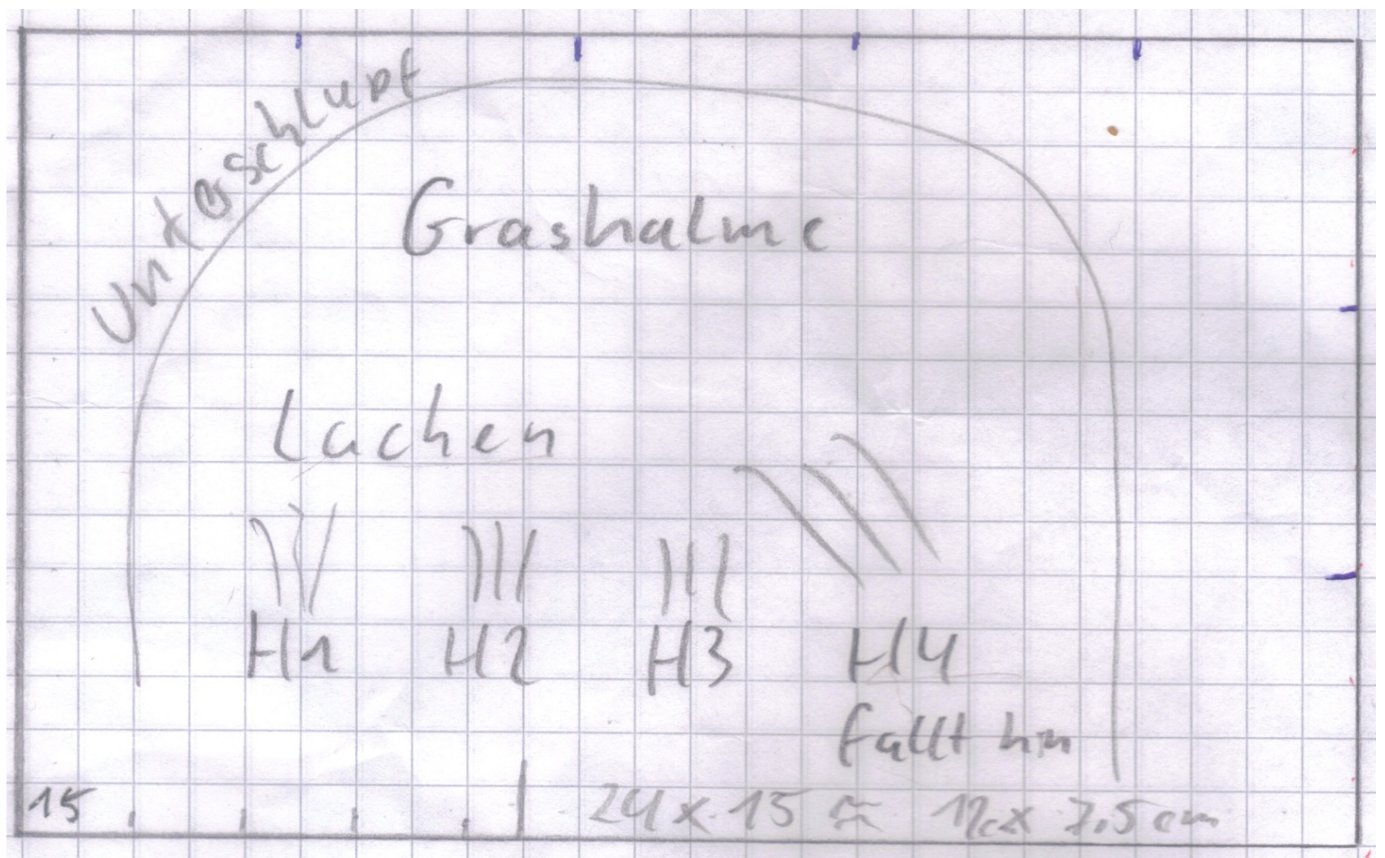 Unterschlupf
Grashalme
Lachen
H1 H2 H3 H4
fällt hin
15
24 x 15 ≈ 12 x 7.5 cm